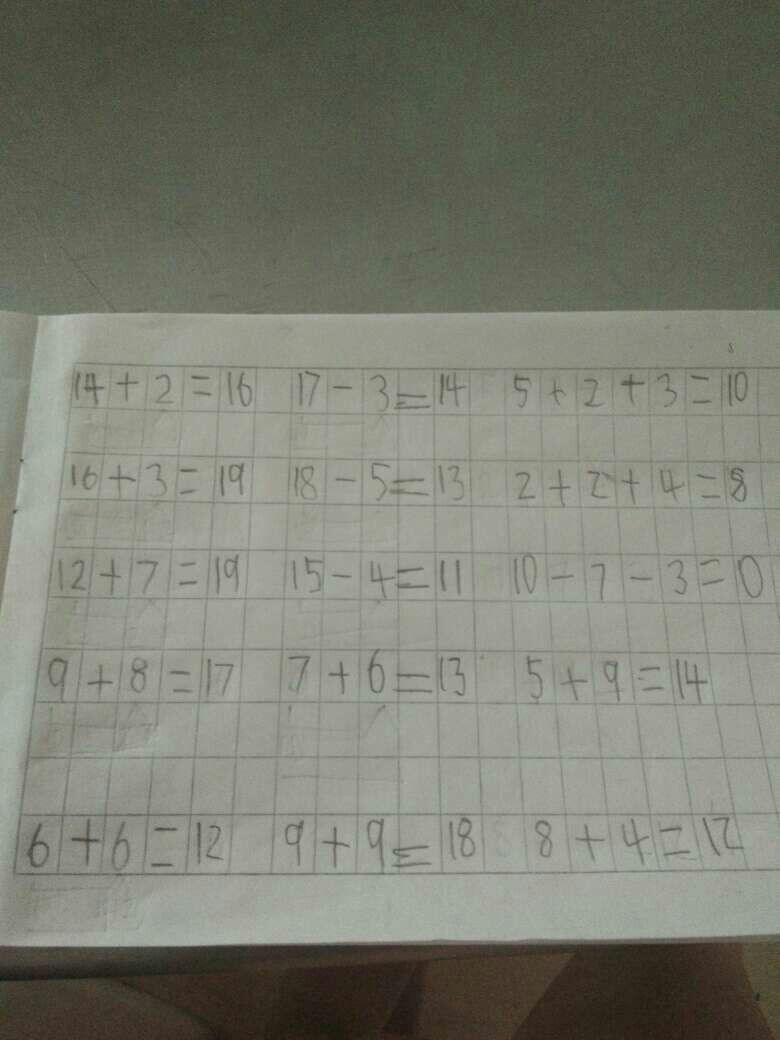 14+2=16 17-3=14 5+2+3=10
16+3=19 18-5=13 2+2+4=8
12+7=19 15-4=11 10-7-3=0
9+8=17 7+6=13 5+9=14
6+6=12 9+9=18 8+4=12